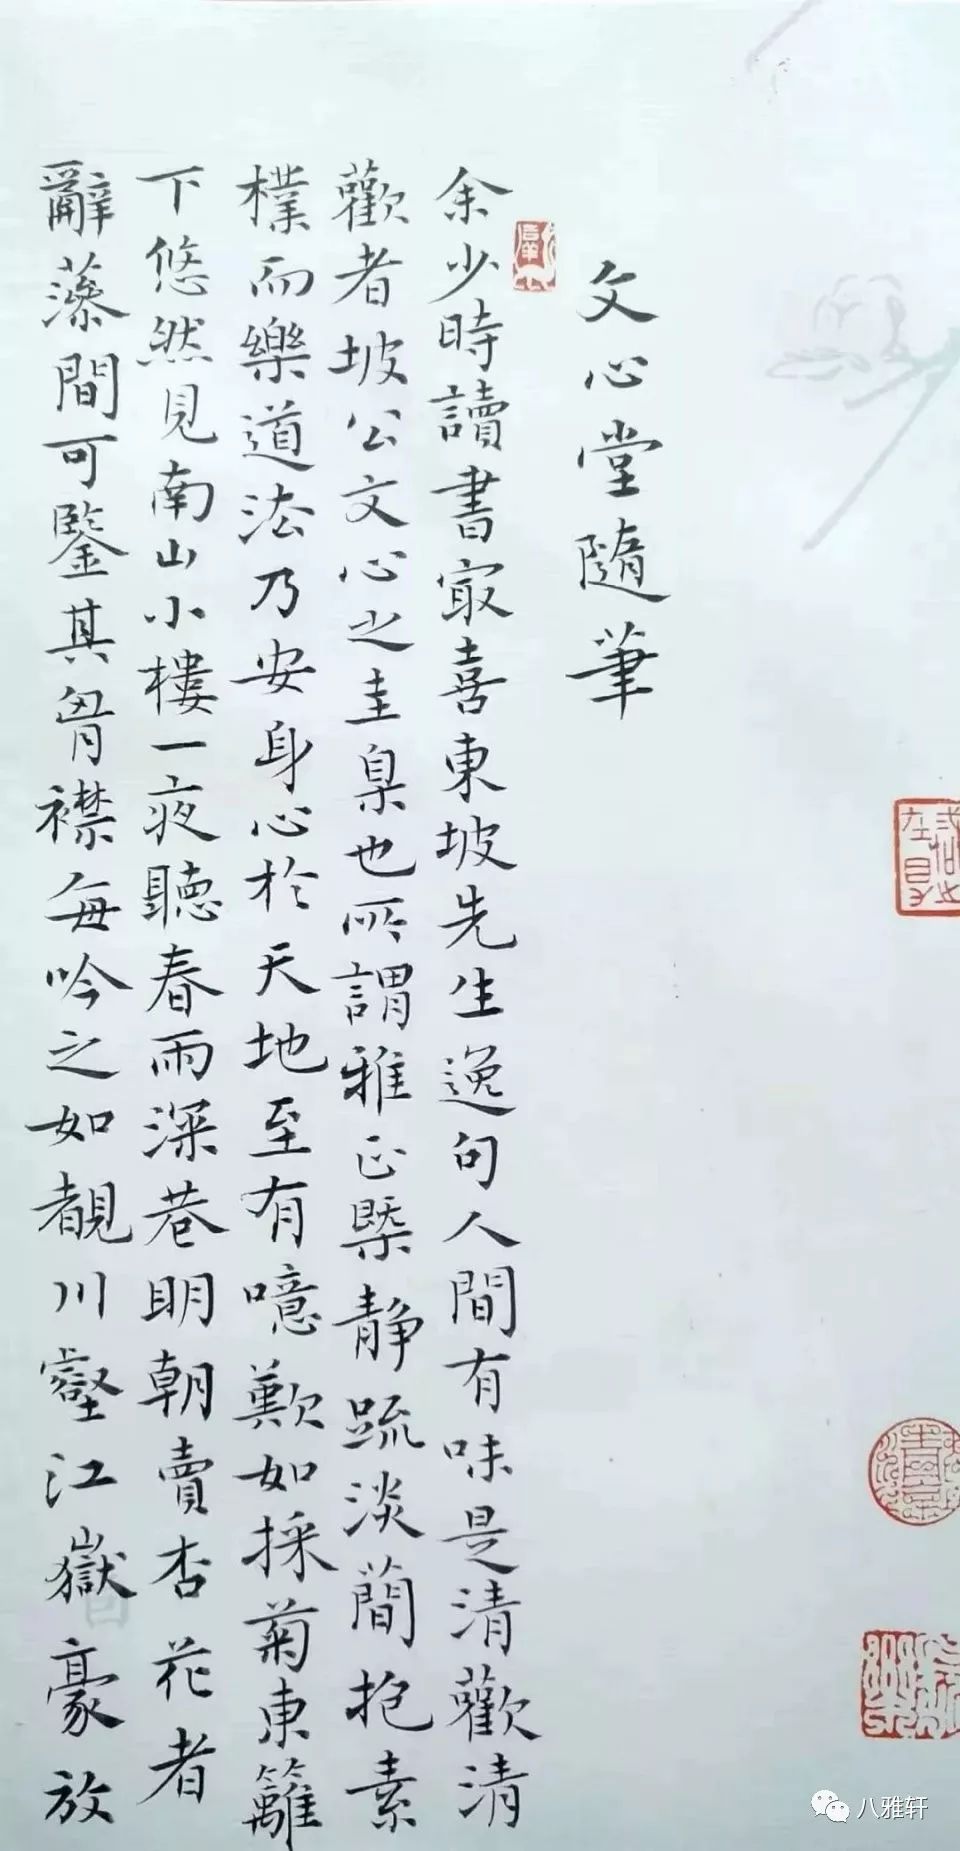 文心堂隨筆
余少時讀書寂喜東坡先生逸句人間有味是清歡清
歡者坡公文心之圭臬也所謂雅正槩静疏淡蕳抱素
樸而樂道法乃安身心於天地至有噫歎如採菊東籬
下悠然見南山小樓一夜聽春雨深巷明朝賣杏花者
辭藻間可鑒其胷襟每吟之如覩川壑江嶽豪放
八雅轩